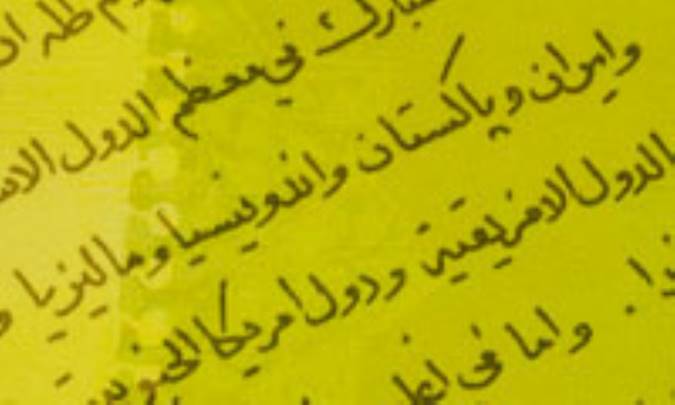 في معظم الدول
وايران وپاكستان واندونيسيا وماليزيا و
الدول الافريقية ودول امريكا الجنوبية
. واما في